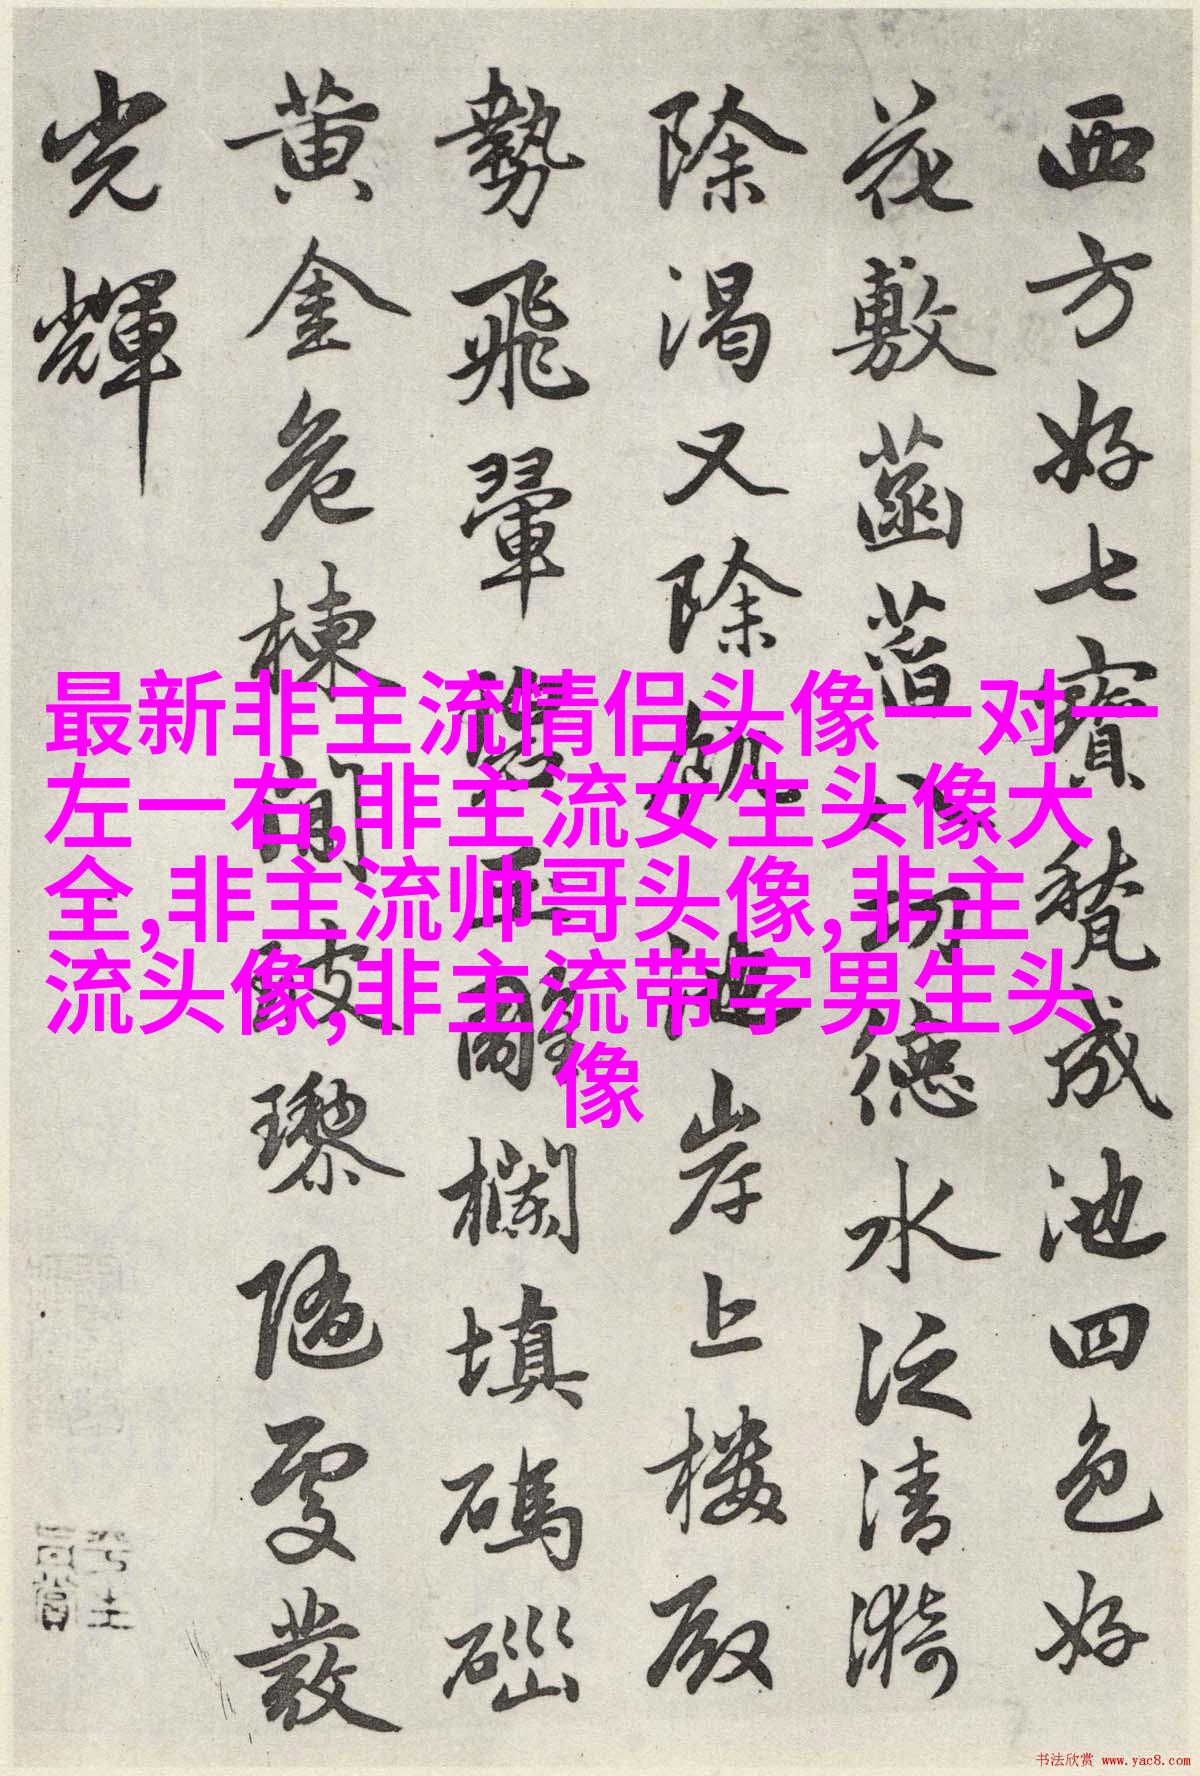 西方好七寶甃成池四色好
花敷菡萏八功德水泛清漪
除渴又除飢池岸上樓殿
勢飛翬碧玉雕欄填碼碯
黃金危棟間玻瓈隨處發
光輝
最新非主流情侣头像一对一
左一右,非主流女生头像大
全,非主流帅哥头像,非主
流头像,非主流带字男生头
像
书法欣赏 www.yac8.com